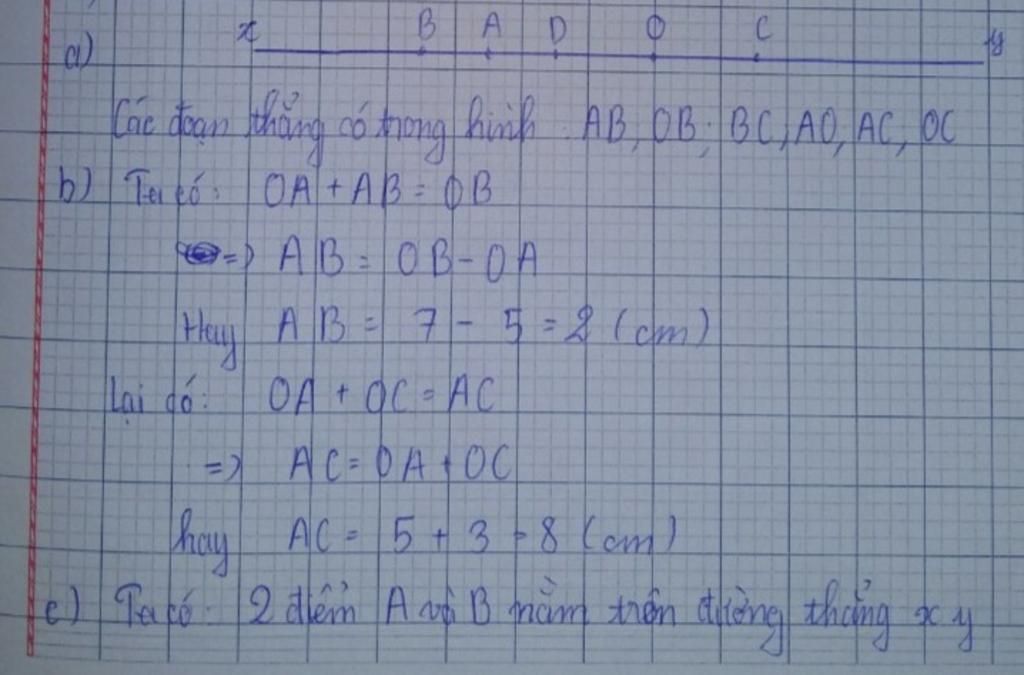 x B A D O C y
a)
Các đoạn thẳng có trong hình: AB, OB; BC, AO, AC, OC
b) Ta có: OA + AB = OB
=> AB = OB - OA
Hay AB = 7 - 5 = 2 (cm)
Lại có: OA + OC = AC
=> AC = OA + OC
hay AC = 5 + 3 = 8 (cm)
c) Ta có: 2 điểm A và B nằm trên đường thẳng xy